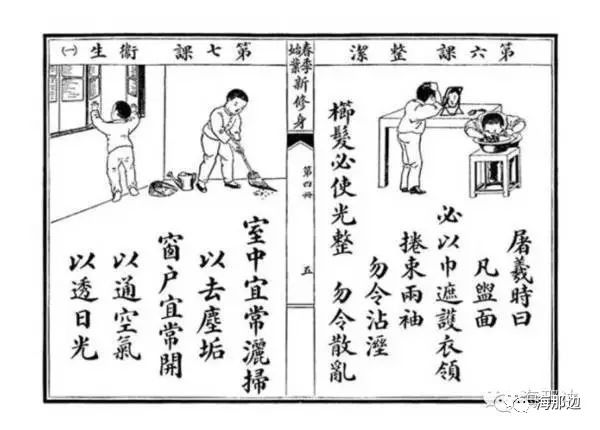 第六課 整潔
屠羲時曰
凡盥面
必以巾遮護衣領
捲束兩袖
勿令沾溼
櫛髮必使光整 勿令散亂
春季始業 新修身
第四冊
五
第七課 衛生(一)
室中宜常灑掃
以去塵垢
窗户宜常開
以通空氣
以透日光
海那边